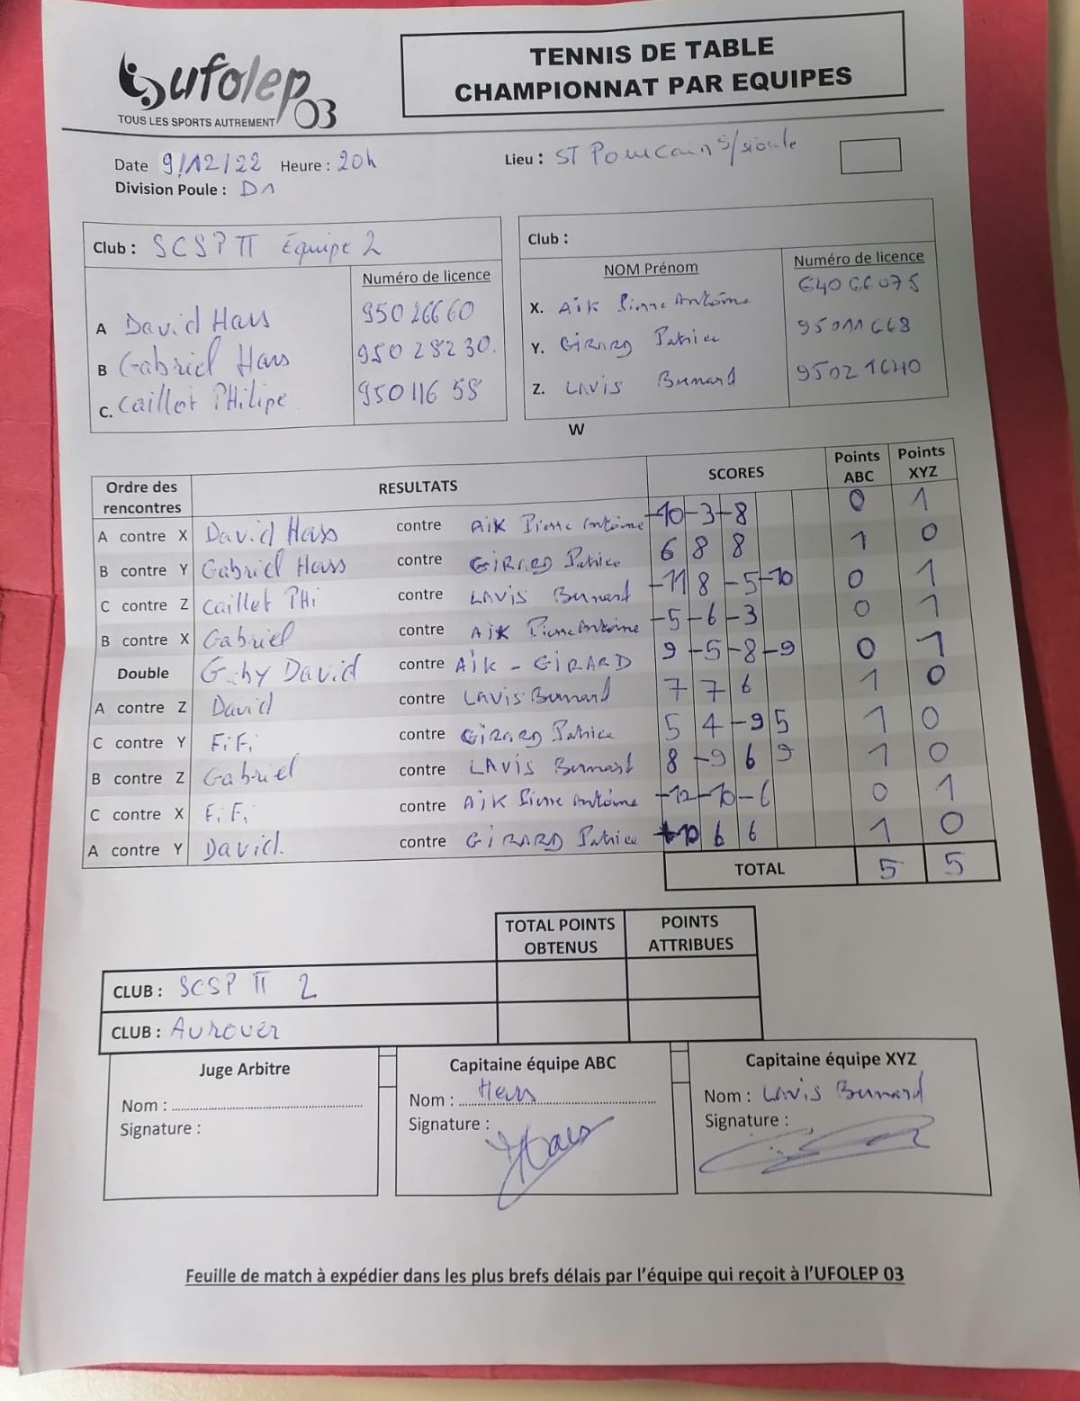 ufolep 03
TOUS LES SPORTS AUTREMENT
TENNIS DE TABLE
CHAMPIONNAT PAR EQUIPES
Date 9/12/22 Heure : 20h
Lieu : ST Pourcain s/sioule
Division Poule : D1
Club : SCSP TT Equipe 2
Club :
Numéro de licence
NOM Prénom
Numéro de licence
A David Hars 95026660
X. Aik Pierre Antoine 64066075
B Gabriel Hars 95028230.
Y. GIRARD Patrice 95011668
C. Caillot PHilipe 95011658
Z. LAVIS Bernard 95021640
W
Ordre des rencontres
RESULTATS
SCORES
Points ABC
Points XYZ
A contre X David Hars contre Aik Pierre Antoine -10 -3 -8 0 1
B contre Y Gabriel Hars contre GIRARD Patrice 6 8 8 1 0
C contre Z Caillot PHi contre LAVIS Bernard -11 8 -5 -10 0 1
B contre X Gabriel contre Aik Pierre Antoine -5 -6 -3 0 1
Double Gaby David contre Aik - GIRARD 9 -5 -8 -9 0 1
A contre Z David contre LAVIS Bernard 7 7 6 1 0
C contre Y FiFi contre GIRARD Patrice 5 4 -9 5 1 0
B contre Z Gabriel contre LAVIS Bernard 8 -9 6 9 1 0
C contre X FiFi contre Aik Pierre Antoine -12 -10 -6 0 1
A contre Y David. contre GIRARD Patrice 10 6 6 1 0
TOTAL 5 5
TOTAL POINTS OBTENUS
POINTS ATTRIBUES
CLUB : SCSP TT 2
CLUB : Aurouër
Juge Arbitre
Nom :
Signature :
Capitaine équipe ABC
Nom : Hars
Signature : Hars
Capitaine équipe XYZ
Nom : LAVIS Bernard
Signature :
Feuille de match à expédier dans les plus brefs délais par l'équipe qui reçoit à l'UFOLEP 03